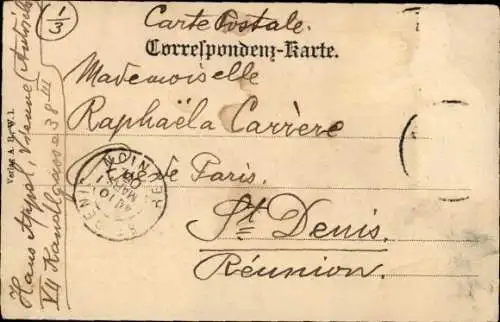 1/3
Carte Postale.
Correspondenz-Karte.
Mademoiselle
Raphaëla Carrère
rue de Paris.
St Denis.
Réunion.
Hans Appol, Vienne (Autriche
VII Kandlgasse 38 III
Verlag A. B. W. I.
REUNION
ST DENIS